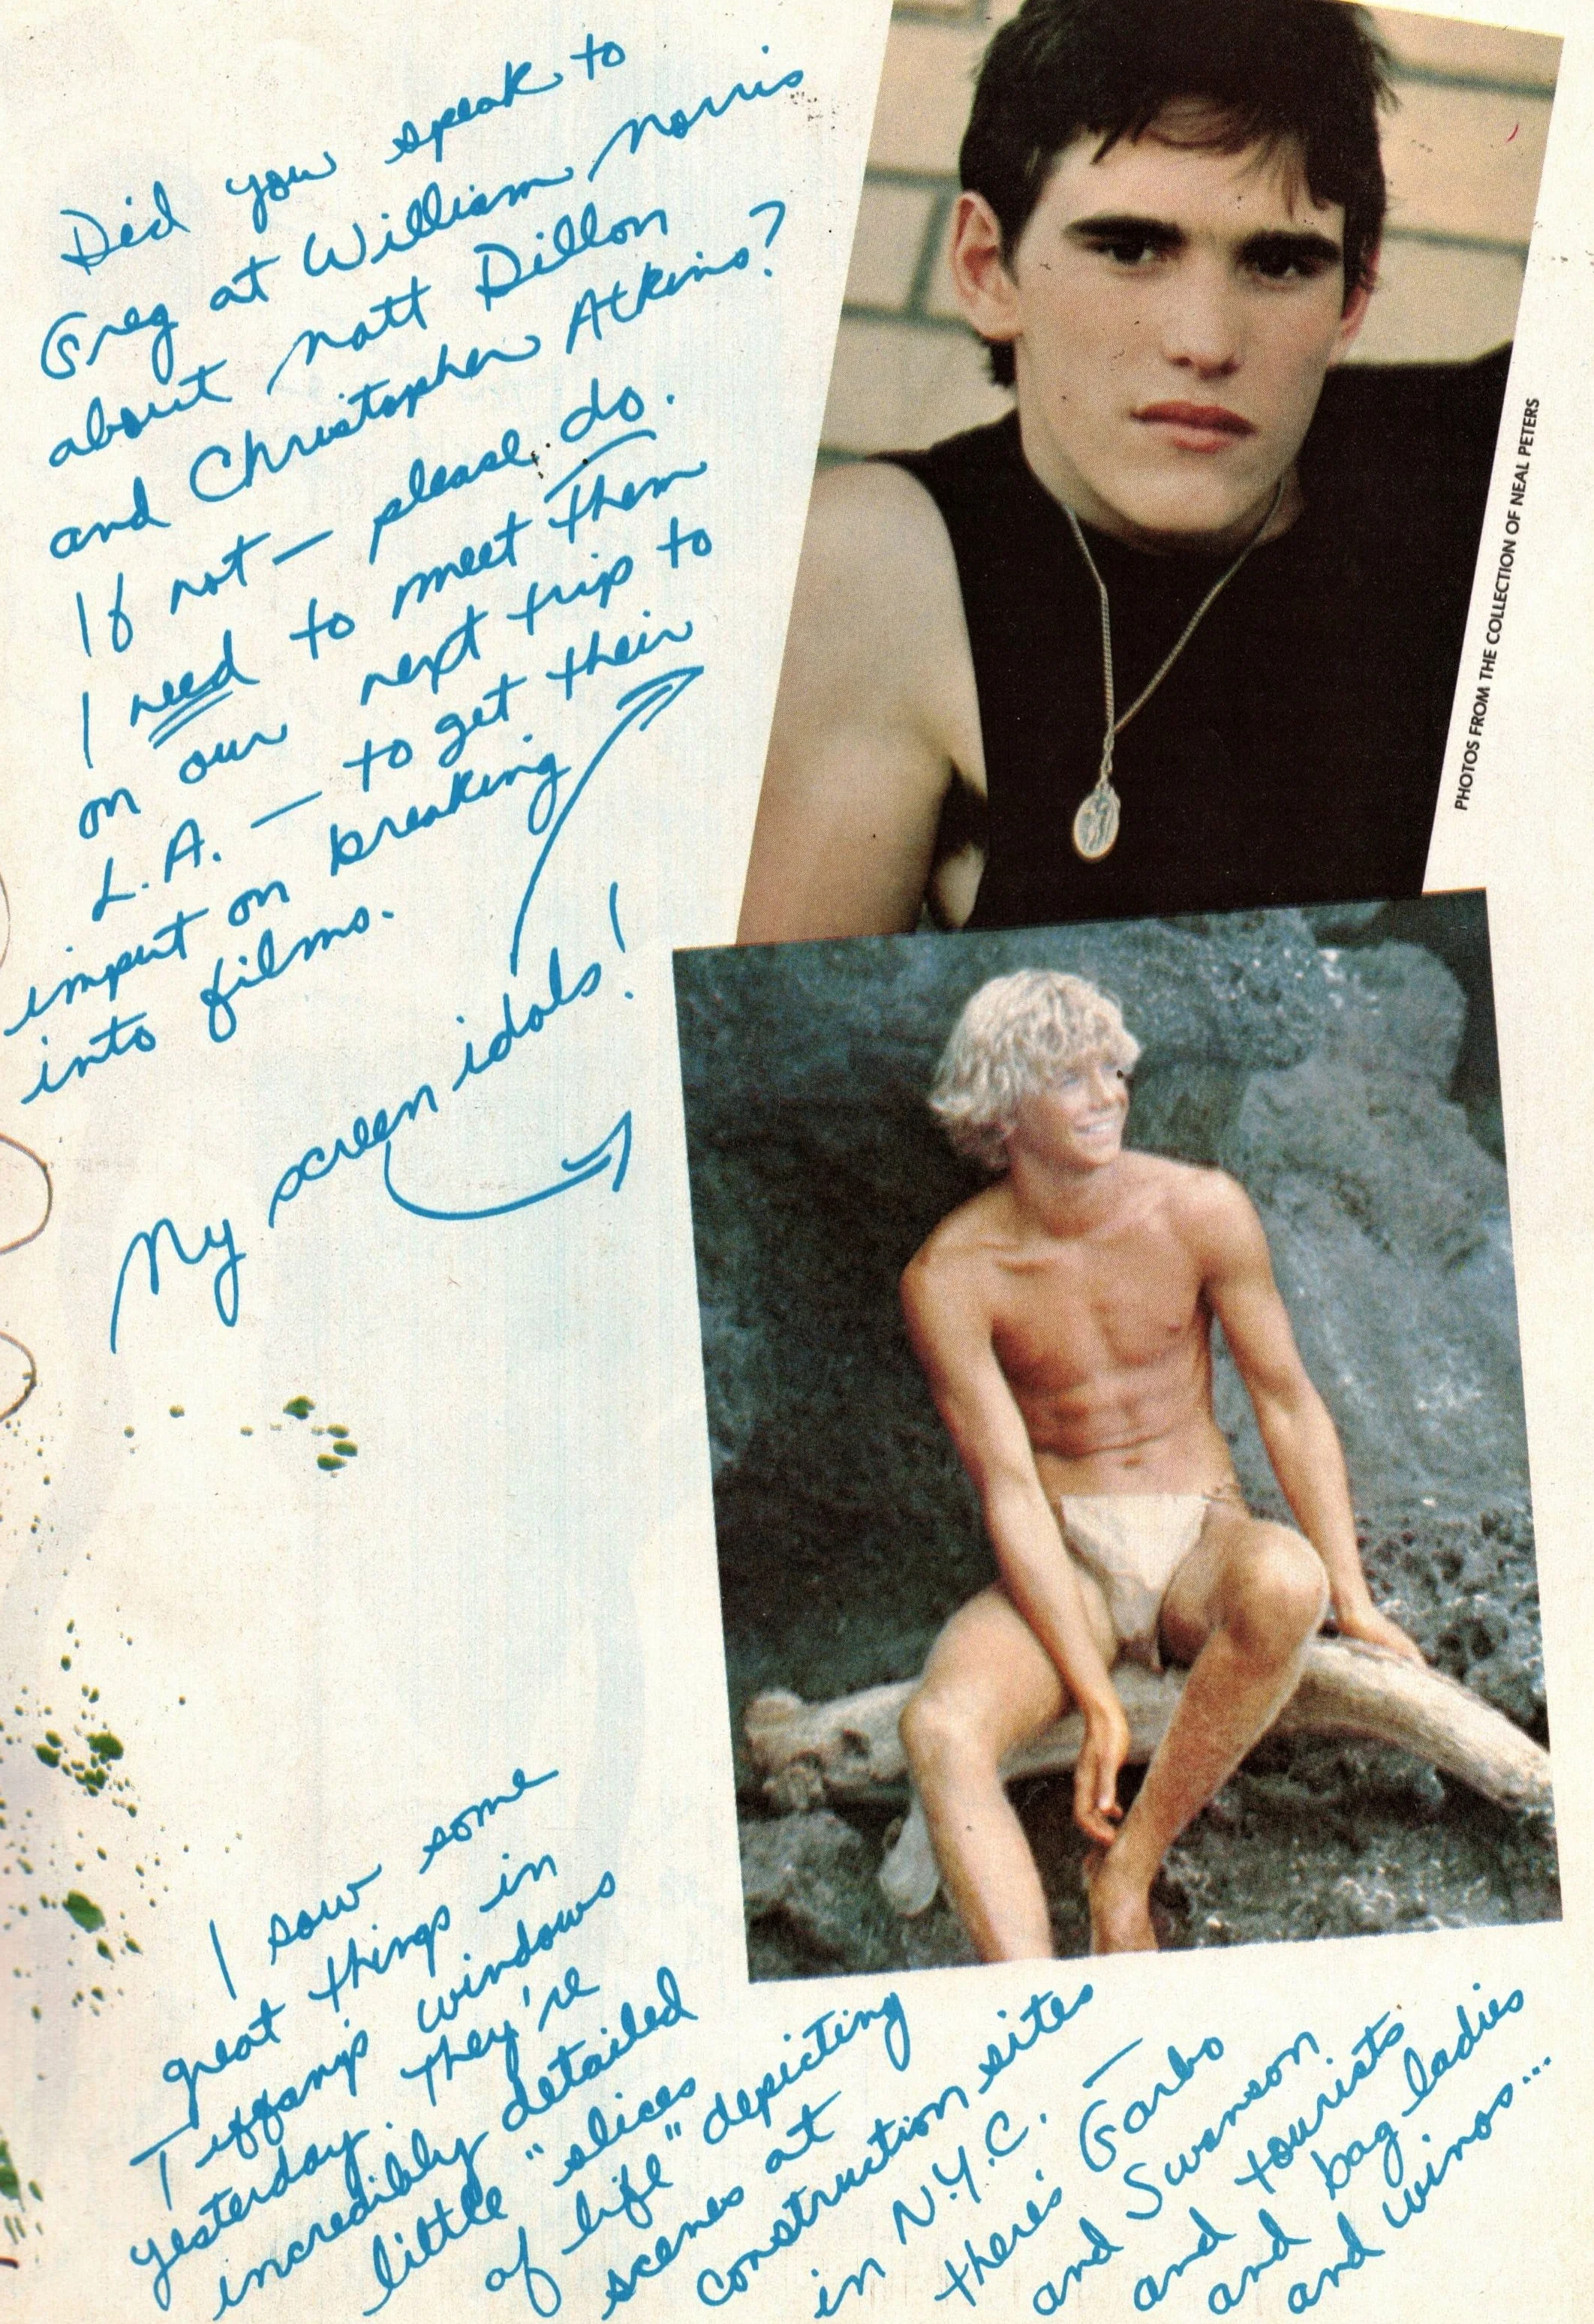 Did you speak to
Greg at William Morris
about Matt Dillon
and Christopher Atkins?
If not — please do.
I need to meet them
on our next trip to
L.A. — to get their
imput on breaking
into films.
My screen idols!
PHOTOS FROM THE COLLECTION OF NEAL PETERS
I saw some
great things in
Tiffany's windows
yesterday. They're
incredibly detailed
little "slices
of life" depicting
scenes at
construction sites
in N.Y.C. —
there's Garbo
and Swanson
and tourists
and bag ladies
and winos...